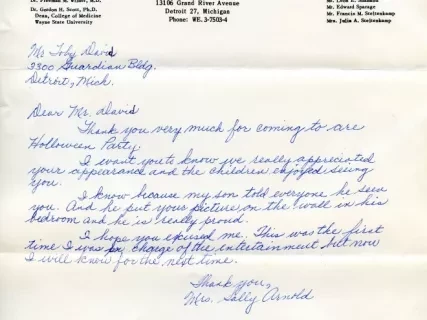 Dr. Gordon H. Scott, Ph.D.
Dean, College of Medicine
Wayne State University
13106 Grand River Avenue
Detroit 27, Michigan
Phone: WE. 3-7503-4
Mr. Edward Sparage
Mr. Francis M. Steltenkamp
Mrs. Julia A. Steltenkamp
Mr Toby David
3300 Guardian Bldg.
Detroit, Mich.
Dear Mr. David
Thank you very much for coming to are
Holloween Party.
I want you to know we really appreciated
your appearance and the children enjoyed seeing
you.
I know because my son told everyone he seen
you. And he put your picture on the wall in his
bedroom and he is really proud.
I hope you excused me. This was the first
time I was in charge of the entertainment but now
I will know for the next time.
Thank you,
Mrs. Sally Arnold